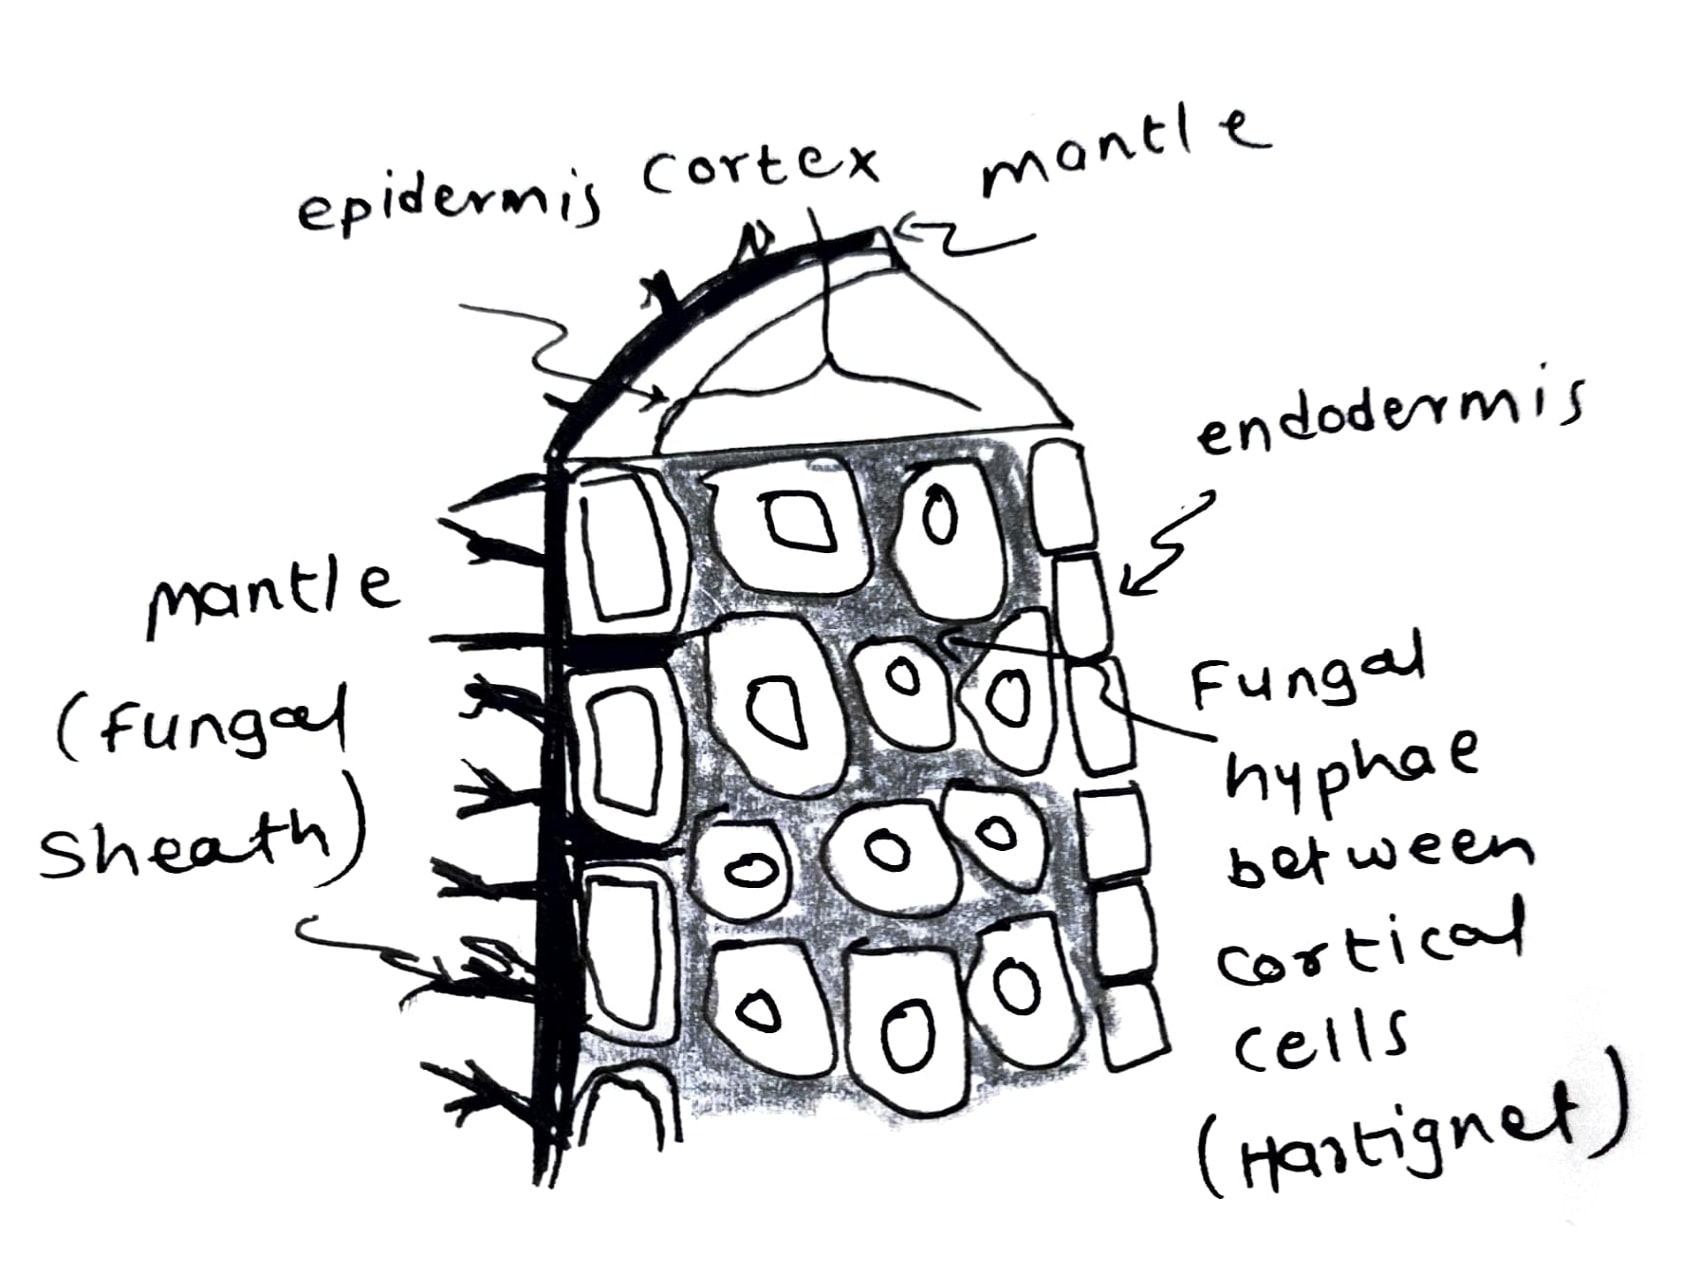 epidermis cortex mantle
endodermis
mantle
(fungal
sheath)
Fungal
hyphae
between
cortical
cells
(Hartignet)